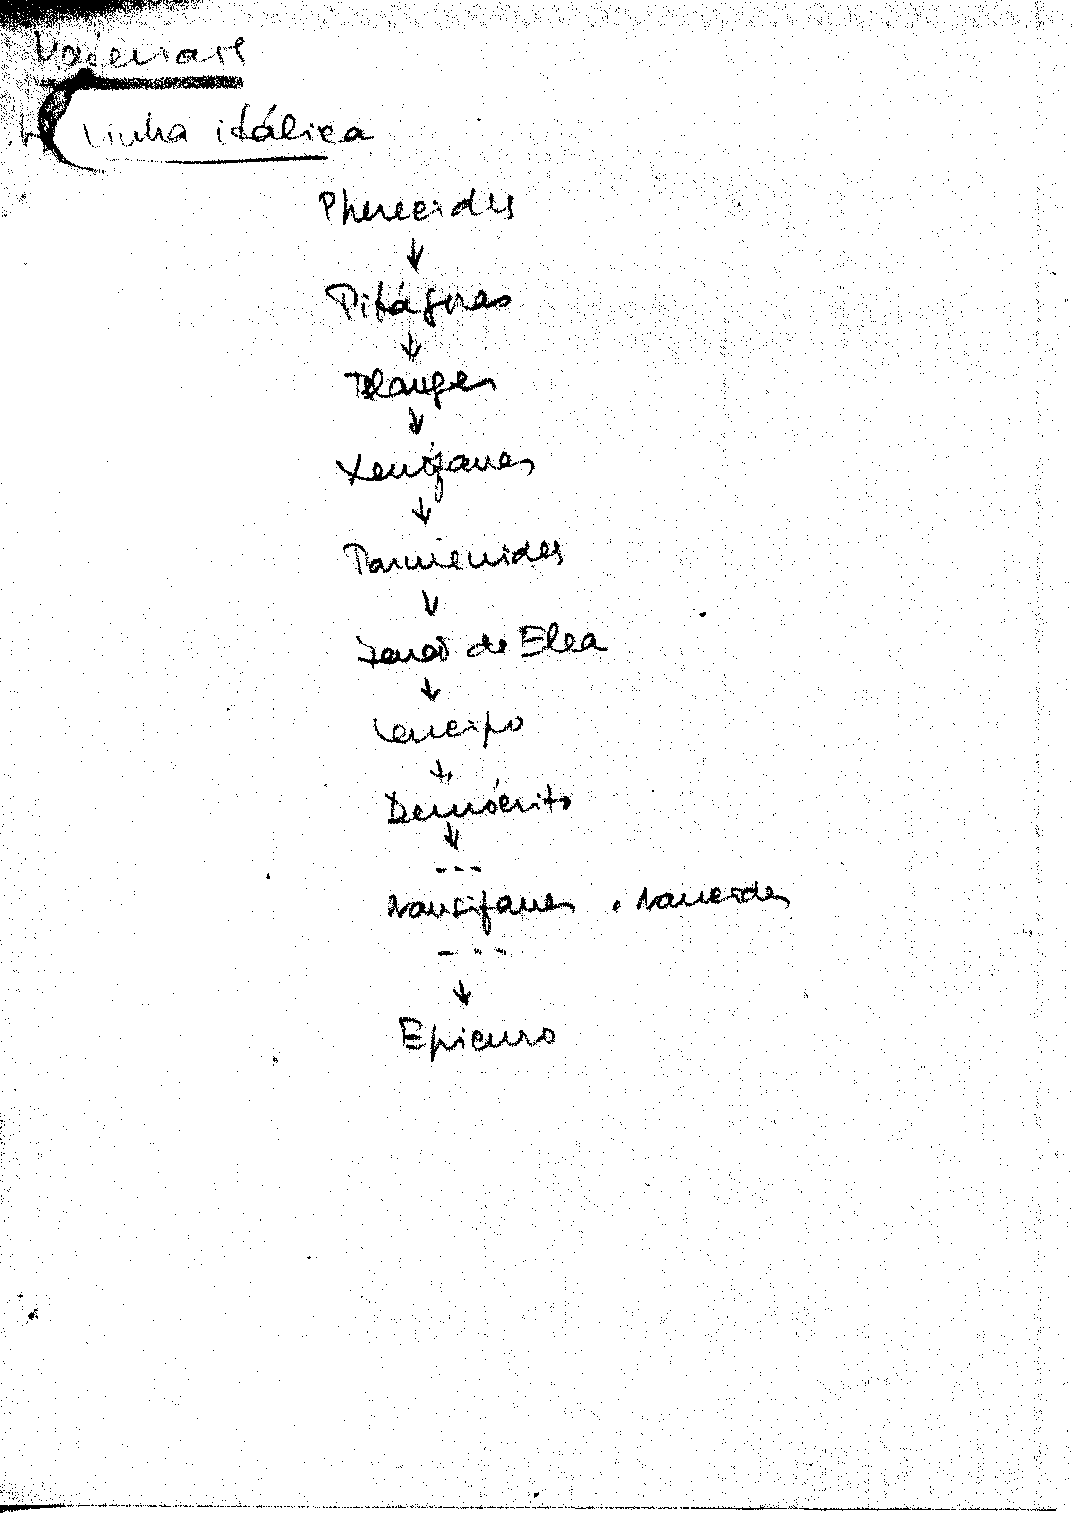 Linha itálica
Pherecides
↓
Pitágoras
↓
Telauges
↓
Xenófanes
↓
Parmenides
↓
Zenão de Elea
↓
Leucipo
↓
Demócrito
↓
---
Nausifanes . Naucides
---
↓
Epicuro